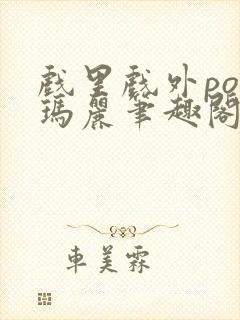 戲里戲外po
瑪麗筆趣閣
車美霖